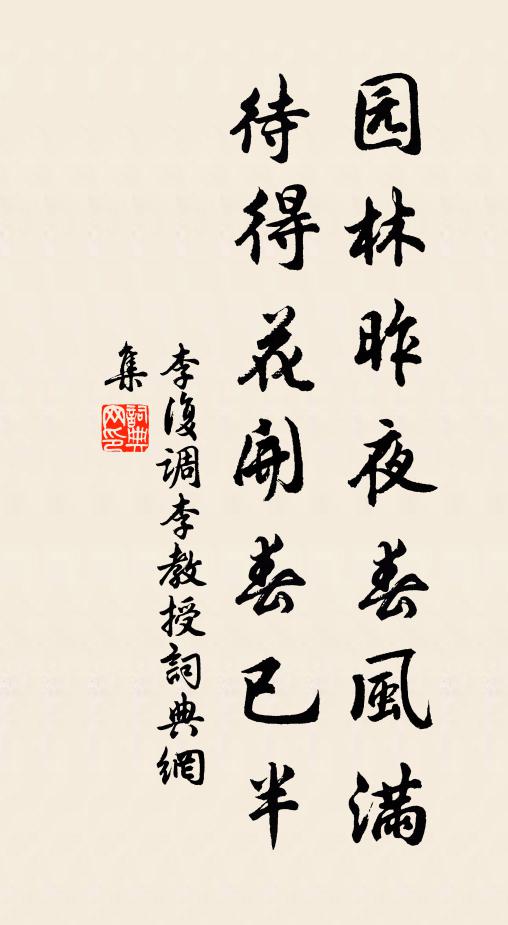 园林昨夜春風滿
待得花開春已半
李復调李教授詞典網
集
詞典网印